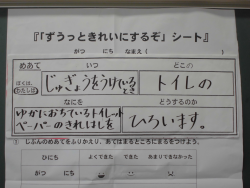 『「ずうっときれいにするぞ」シート』
がつ　にち　なまえ（　　　）
めあて　いつ　どこの
ぼくは、わたしは　じゅぎょうをうけているとき　トイレの
なにを　どうするのか
ゆかにおちているトイレット　ひろいます。
ペーパーのきれはしを
じぶんのめあてをふりかえり、あてはまるところにまるをつけよう。
ひにち　よくできた　できた　あまりできなかった